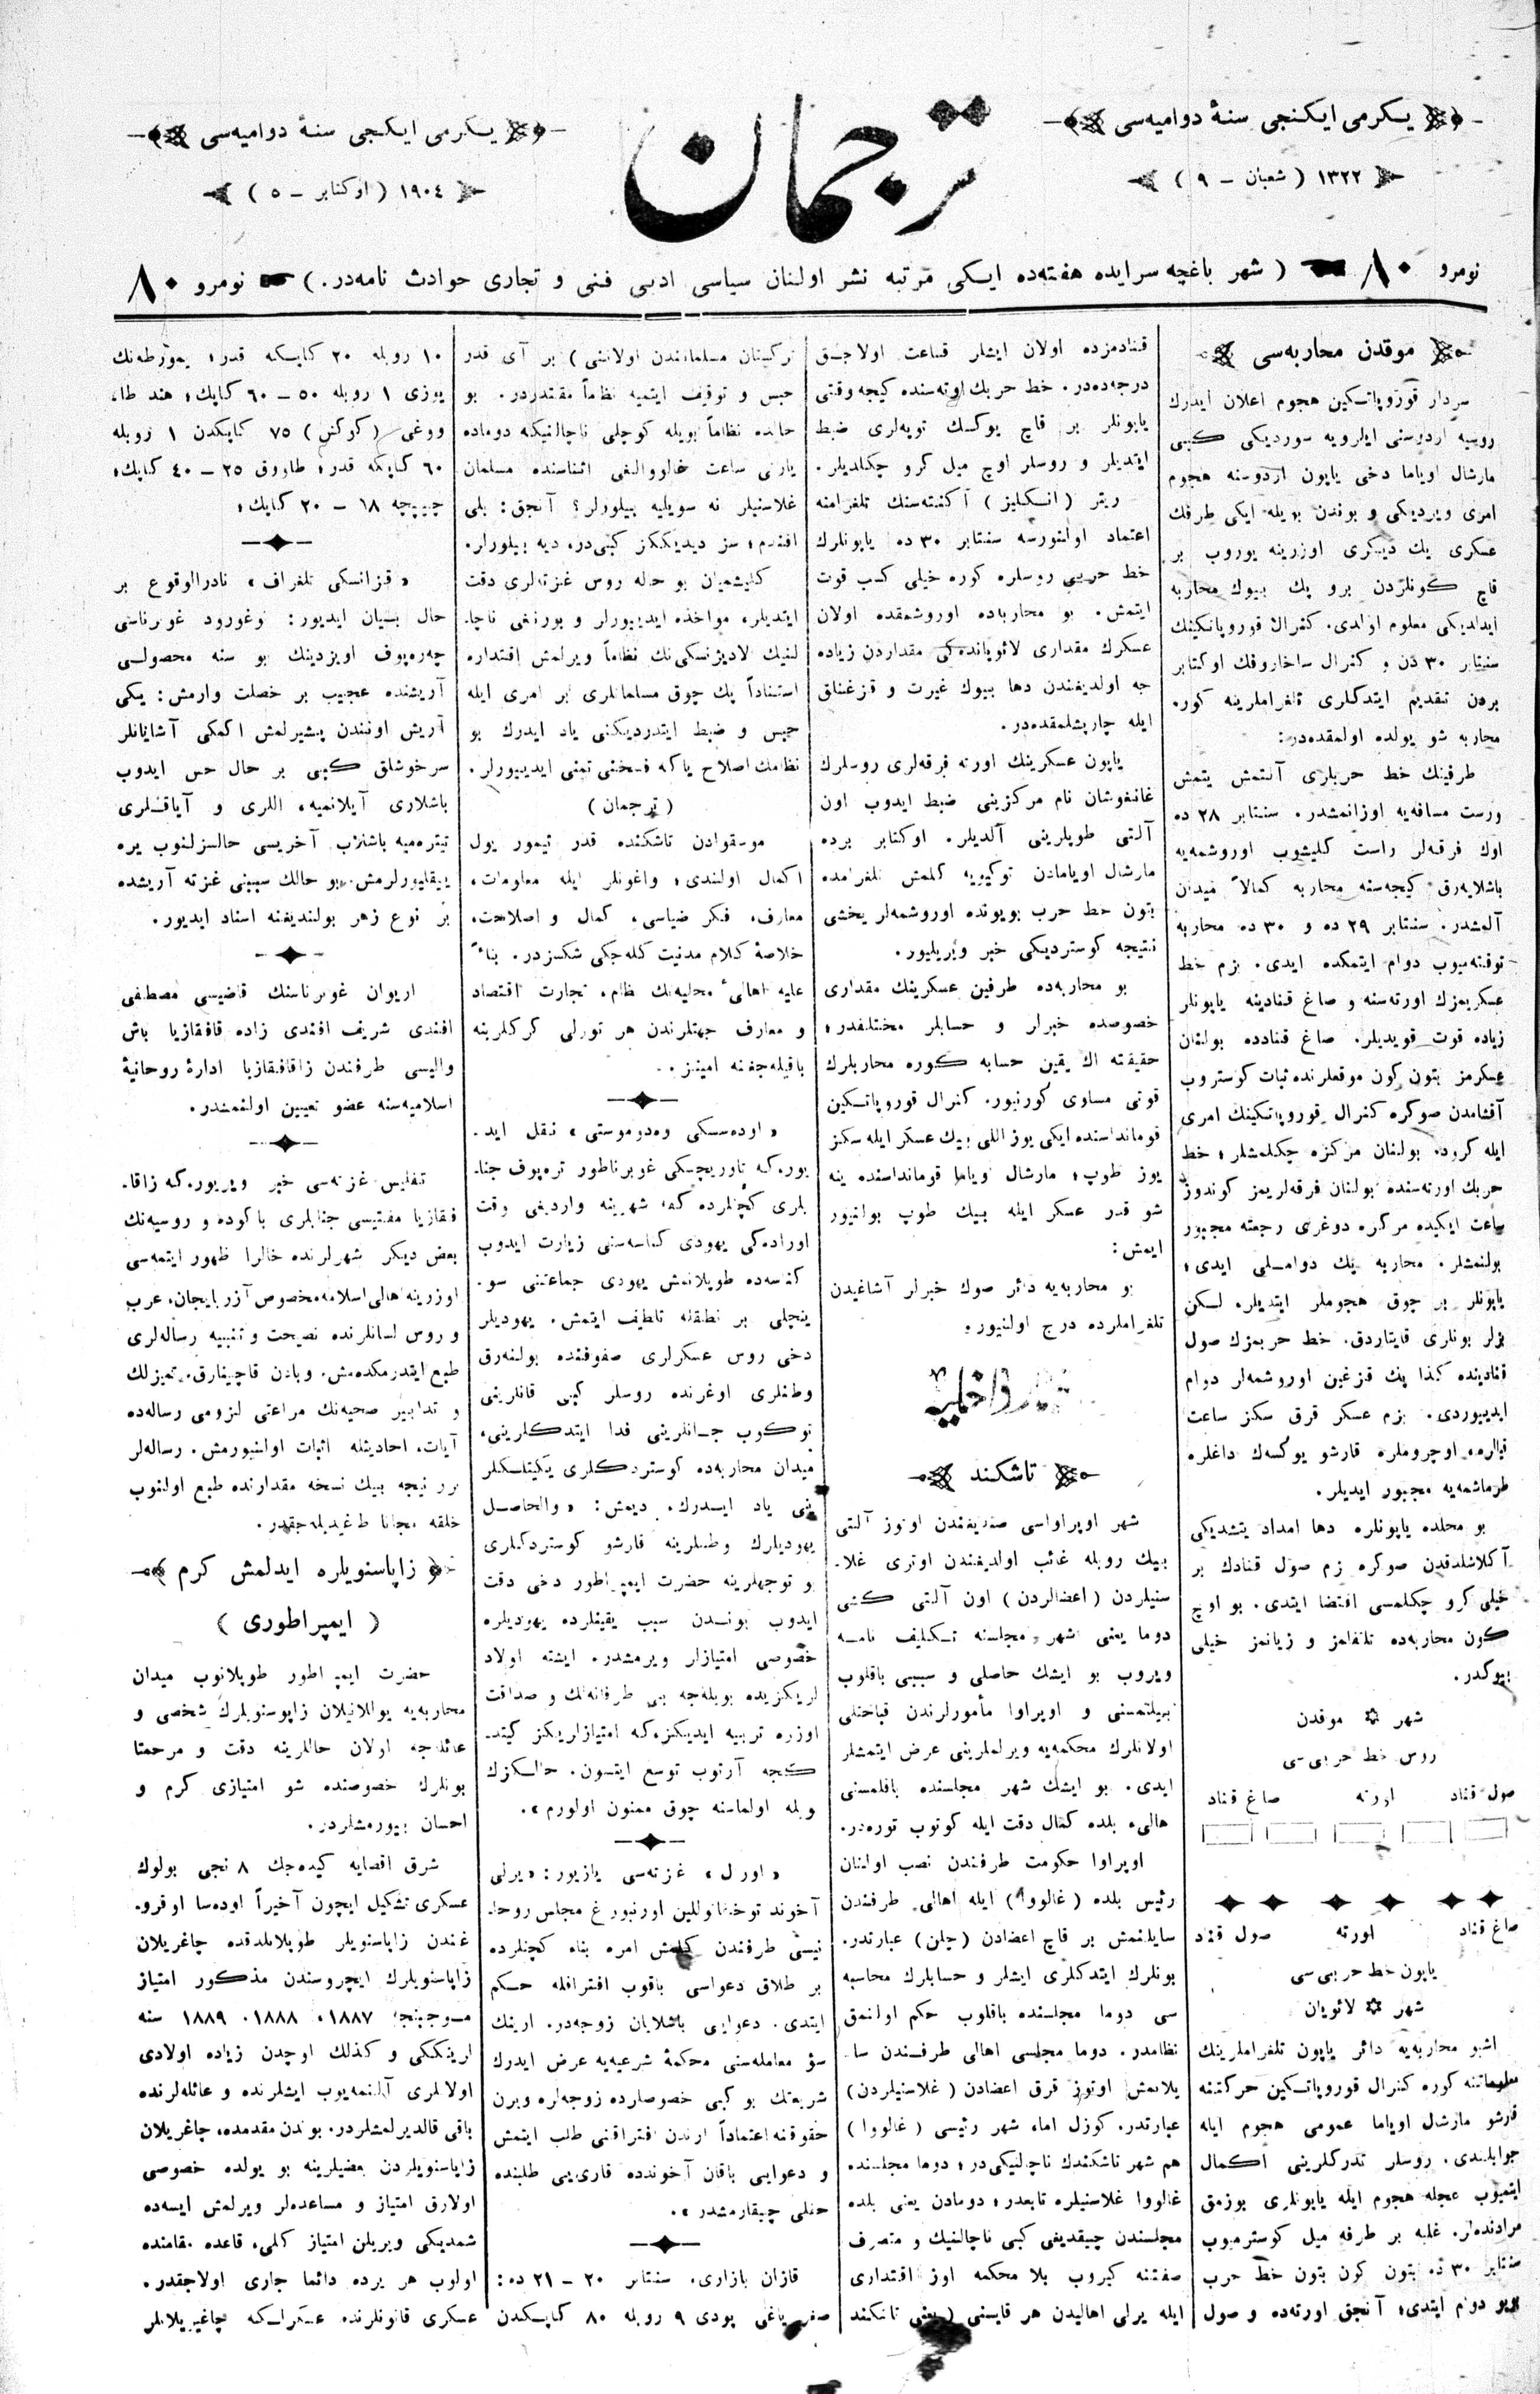 يكرمى ايكنجى سنۀ دواميه‌سى
١٣٢٢ ( شعبان – ٩ )
ترجمان
يكرمى ايكنجى سنۀ دواميه‌سى
١٩٠٤ ( اوكتابر – ٥ )
نومرو ٨٠ ( شهر باغچه سرايده هفته‌ده ايكى مرتبه نشر اولنان سياسى ادبى فنى و تجارى حوادث نامه‌در. ) نومرو ٨٠
موقدن محاربه‌سى
سردار قوروپاتكين هجوم اعلان ايدرك
روسيه اردوسنى ايلرويه سورديكى كبى
مارشال اوياما دخى ياپون اردوسنه هجوم
امرى ويرديكى و بوندن بويله ايكى طرفك
عسكرى يك ديكرى اوزرينه يوروب بر
قاچ كونلردن برو پك بيوك محاربه
ايدلديكى معلوم اولدى. كنرال قوروپاتكينك
سنتابر ٣٠ دن و كنرال ساخاروفك اوكتابر
بردن تقديم ايتدكلرى تلغراملرينه كوره
محاربه شو يولده اولمقده‌در:
طرفينك خط حربلرى آلتمش يتمش
ورست مسافه‌يه اوزانمشدر. سنتابر ٢٨ ده
اوك فرقه‌لر راست كليشوب اوروشمه‌يه
باشلايه‌رق كيجه‌سنه محاربه كمالاً ميدان
آلمشدر. سنتابر ٢٩ ده و ٣٠ ده محاربه
توقته‌ميوب دوام ايتمكده ايدى. بزم خط
عسكريمزك اورته‌سنه و صاغ قنادينه ياپونلر
زياده قوت قويديلر. صاغ قنادده بولنان
عسكرمز بتون كون موقعلرنده ثبات كوستروب
آقشامدن صوكره كنرال قوروپاتكينك امرى
ايله كروده بولنان مركزه چكلمشلر؛ خط
حربك اورته‌سنده بولنان فرقه‌لريمز كوندوز
ساعت ايكيده مركزه دوغرى رجعته مجبور
بولنمشلر. محاربه پك دواملى ايدى؛
ياپونلر بر چوق هجوملر ايتديلر. لكن
بزلر بونلرى قايتاردق. خط حربمزك صول
قنادينده كذا پك قزغين اوروشمه‌لر دوام
ايدييوردى. بزم عسكر قرق سكز ساعت
قيالره، اوچروملره قارشو يوكسك داغلره
طرماشمه‌يه مجبور ايديلر.
بو محلده ياپونلره دها امداد يتشديكى
آكلاشلدقدن صوكره بزم صول قنادك بر
خيلى كرو چكلمسى اقتضا ايتدى. بو اوچ
كون محاربه‌ده تلفاتمز و زيانمز خيلى
بيوكدر.
شهر موقدن
روس خط حربى‌سى
صول قناد اورته صاغ قناد
صاغ قناد اورته صول قناد
ياپون خط حربى‌سى
شهر لائويان
اشبو محاربه‌يه دائر ياپون تلغراملرينك
معلوماتنه كوره كنرال قوروپاتكين حركتنه
قارشو مارشال اوياما عمومى هجوم ايله
جوابلندى. روسلر تدركلرينى اكمال
ايتميوب عجله هجوم ايله ياپونلرى بوزمق
مرادنده‌لر. غلبه بر طرفه ميل كوسترميوب
سنتابر ٣٠ ده بتون كون بتون خط حرب
بويو دوام ايتدى؛ آنجق اورته‌ده و صول
قنادمزده اولان ايشلر قناعت اولاجق
درجه‌ده‌در. خط حربك اورته‌سنده كيجه وقتى
ياپونلر بر قاچ يوكسك توپه‌لرى ضبط
ايتديلر و روسلر اوچ ميل كرو چكلديلر.
ريتر ( انكليز ) آكنته‌سنك تلغرامنه
اعتماد اولنورسه سنتابر ٣٠ ده ياپونلرك
خط حربى روسلره كوره خيلى كسب قوت
ايتمش. بو محاربه‌ده اوروشمقده اولان
عسكرك مقدارى لائويانده‌كى مقداردن زياده
جه اولديغندن دها بيوك غيرت و قزغنلق
ايله چارپشلمقده‌در.
ياپون عسكرينك اورته فرقه‌لرى روسلرك
غانغوشان نام مركزينى ضبط ايدوب اون
آلتى طوپلرينى آلديلر. اوكتابر برده
مارشال اويامادن توكيويه كلمش تلغرامده
بتون خط حرب بويونده اوروشمه‌لر يخشى
نتيجه كوسترديكى خبر ويريليور.
بو محاربه‌ده طرفين عسكرينك مقدارى
خصوصده خبرلر و حسابلر مختلفدر؛
حقيقته اك يقين حسابه كوره محاربلرك
قوتى مساوى كورنيور. كنرال قوروپاتكين
قومانداسنده ايكى يوز اللى بيك عسكر ايله سكز
يوز طوپ؛ مارشال اوياما قومانداسنده ينه
شو قدر عسكر ايله بيك طوپ بولنيور
ايمش:
بو محاربه‌يه دائر صوك خبرلر آشاغيدن
تلغراملرده درج اولنيور.
داخليه
تاشكند
شهر اوپراواسى صنديغندن اوتوز آلتى
بيك روبله غائب اولديغندن اوترى غلا-
سنيلردن ( اعضالردن ) اون آلتى كشى
دوما يعنى شهر مجلسنه تكليف نامه
ويروب بو ايشك حاصلى و سببى باقلوب
بيلنمسنى و اوپراوا مأمورلرندن قباحتلى
اولانلرك محكمه‌يه ويرلملرينى عرض ايتمشلر
ايدى. بو ايشك شهر مجلسنده باقلمسنى
هالىء بلده كمال دقت ايله كوتوب توره‌در.
اوپراوا حكومت طرفندن نصب اولنان
رئيس بلده ( غالووا ) ايله اهالى طرفندن
سايلنمش بر قاچ اعضادن ( چلن ) عبارتدر.
بونلرك ايتدكلرى ايشلر و حسابلرك محاسبه
سى دوما مجلسنده باقلوب حكم اولنمق
نظامدر. دوما مجلسى اهالى طرفندن سا-
يلانمش اوتوز قرق اعضادن ( غلاسنيلردن )
عبارتدر. كوزل اما، شهر رئيسى ( غالووا )
هم شهر تاشكندك ناچالنيكى‌در؛ دوما مجلسنده
غالووا غلاسنيلره تابعدر؛ دومادن يعنى بلده
مجلسندن چيقديغى كبى ناچالنيك و متصرف
صفتنه كيروب بلا محكمه اوز اقتدارى
ايله يرلى اهاليدن هر قايسنى ( يعنى تاشكند
تركستان مسلماندن اولاننى ) بر آى قدر
حبس و توقيف ايتميه نظاماً مقتدردر. بو
حالده نظاماً بويله كوچلى ناچالنيكه دوماده
يارنى ساعت غالووالغى اثناسنده مسلمان
غلاسنيلر نه سويليه بيلورلر؟ آنجق: بلى
افندم؛ سز ديديككز كبى‌در، ديه بيلورلر.
كليشميان بو حاله روس غزته‌لرى دقت
ايتديلر، مواخذه ايدييورلر و بورنغى ناچا-
لنيك لاديژنسكى‌نك نظاماً ويرلمش اقتداره
استناداً پك چوق مسلمانلرى بر امرى ايله
حبس و ضبط ايتدرديكنى ياد ايدرك بو
نظامك اصلاح ياكه فسختى تمنى ايدييورلر.
( ترجمان )
موسقوادن تاشكنده قدر تيمور يول
اكمال اولندى؛ واغونلر ايله معلومات،
معارف، فكر ضياسى، كمال و اصلاحت،
خلاصۀ كلام مدنيت كله‌جكى شكسزدر. بناءً
عليه اهالىء محليه‌نك ظالم، تجارت اقتصاد
و معارف جهتلرندن هر تورلى كركلرينه
باقيله‌جغنه امينز.
« اوده‌سسكى وه‌دوموستى » نقل ايد-
يوركه تاوريچسكى غوبرناطور تره‌پوف جنا-
بلرى كچنلرده كفه شهرينه وارديغى وقت
اوراده‌كى يهودى كناسه‌سنى زيارت ايدوب
كناسه‌ده طوپلانمش يهودى جماعتنى سو-
ينجلى بر نطقله تلطيف ايتمش. يهوديلر
دخى روس عسكرلرى صفوفنده بولنه‌رق
وطنلرى اوغرنده روسلر كبى قانلرينى
توكوب جانلرينى فدا ايتدكلرينى،
ميدان محاربه‌ده كوستردكلرى يكيتلكلر
ينى ياد ايدرك، ديمش: « والحاصل
يهوديلرك وطنلرينه قارشو كوستردكلرى
و توجهلرينه حضرت ايمپراطور دخى دقت
ايدوب بوندن سبب يقينلرده يهوديلره
خصوصى امتيازلر ويرمشدر. ايشته اولاد
لريكزيده بويله‌جه بى طرفانه‌لك و صداقت
اوزره تربيه ايديكزكه امتيازلريكز كيت-
كجه آرتوب توسع ايتسون. حالكزك
ويله اولماسنه چوق ممنون اولورم ».
« اورل » غزته‌سى يازيور: « يرلى
آخوند توختاوللين اورنبورغ مجلس روحا-
نيسى طرفندن كلمش امره بناء كچنلرده
بر طلاق دعواسى باقوب افتراقله حكم
ايتدى. دعوايى باشلايان زوجه‌در. ارينك
سؤ معامله‌سنى محكمۀ شرعيه‌يه عرض ايدرك
شريعتك بو كبى خصوصلرده زوجه‌لره ويرن
حقوقنه اعتماداً ارندن افتراقنى طلب ايتمش
و دعوايى باقان آخوندده قارى‌يى طلبنده
حقلى چيقارمشدر ».
قازان بازارى. سنتابر ٢٠ – ٢١ ده:
صغر ياغى پودى ٩ روبله ٨٠ كاپيكدن
١٠ روبله ٢٠ كاپيكه قدر؛ يمورطه‌نك
يوزى ١ روبله ٥٠ – ٦٠ كاپك؛ هند طا،
ووغى ( كركس ) ٧٥ كاپكدن ١ روبله
٦٠ كاپيكه قدر؛ طاروق ٢٥ – ٤٠ كاپك؛
چيپچه ١٨ – ٢٠ كاپك؛
« قزانسكى تلغراف » نادرالوقوع بر
حال بيان ايديور: نوغورود غوبرناسى
چه‌ره‌پوف اويزدينك بو سنه محصولى
آريشنده عجيب بر خصلت وارمش: يكى
آريش اونندن پيشيرلمش اكمكى آشايانلر
سرخوشلق كبى بر حال حس ايدوب
باشلارى آيلانميه، اللرى و آياقلرى
تيتره‌ميه باشلاب آخريسى حالسزلنوب يره
ييقليورلرمش. بو حالك سببنى غزته آريشده
بر نوع زهر بولنديغنه اسناد ايديور.
اريوان غوبرناسنك قاضيسى مصطفى
افندى شريف افندى زاده قافقازيا باش
واليسى طرفندن زاقافقازيا ادارۀ روحانيۀ
اسلاميه‌سنه عضو تعيين اولنمشدر.
تفليس غزته‌سى خبر ويريوركه زاقا-
فقازيا مفتيسى جنابلرى باكوده و روسيه‌نك
بعض ديكر شهرلرنده خالرا ظهور ايتمه‌سى
اوزرينه اهالى اسلامه مخصوص آزربايجان، عرب
و روس لسانلرنده نصيحت و تنبيه رساله‌لرى
طبع ايتدرمكده‌مش. وبادن قاچينارق، تميزلك
و تدابير صحيه‌نك مراعتى لزومى رساله‌ده
آيات، احاديثله اثبات اولنيورمش. رساله‌لر
بر نيجه بيك نسخه مقدارنده طبع اولنوب
خلقه مجانا طاغيديله‌جقدر.
زاپاسنويلره ايدلمش كرم
( ايمپراطورى )
حضرت ايمپراطور طوپلانوب ميدان
محاربه‌يه يوللانيلان زاپوسنويلرك شخصى و
عائله‌جه اولان حاللرينه دقت و مرحمتا
بونلرك خصوصنده شو امتيازى كرم و
احسان بيورمشلردر.
شرق اقصايه كيده‌جك ٨ نجى بولوك
عسكرى تشكيل ايچون آخيراً اوده‌سا اوقرو-
غندن زاپاسنويلر طوپلانلدقده چاغريلان
زاپاسنويلرك ايچروسندن مذكور امتياز
موجبنجه ١٨٨٧، ١٨٨٨، ١٨٨٩ سنه
لرينككى و كذلك اوچدن زياده اولادى
اولالرى آلنمه‌يوب ايشلرنده و عائله‌لرنده
باقى قالديرلمشلردر. بوندن مقدمده، چاغريلان
زاپاسنويلردن بعضيلرينه بو يولده خصوصى
اولارق امتياز و مساعده‌لر ويرلمش ايسه‌ده
شمديكى ويريلن امتياز كلمى، قاعده مقامنده
اولوب هر يرده دائما جارى اولاجقدر.
عسكرى قانونلرنده عسكرلكه چاغيريلانلر